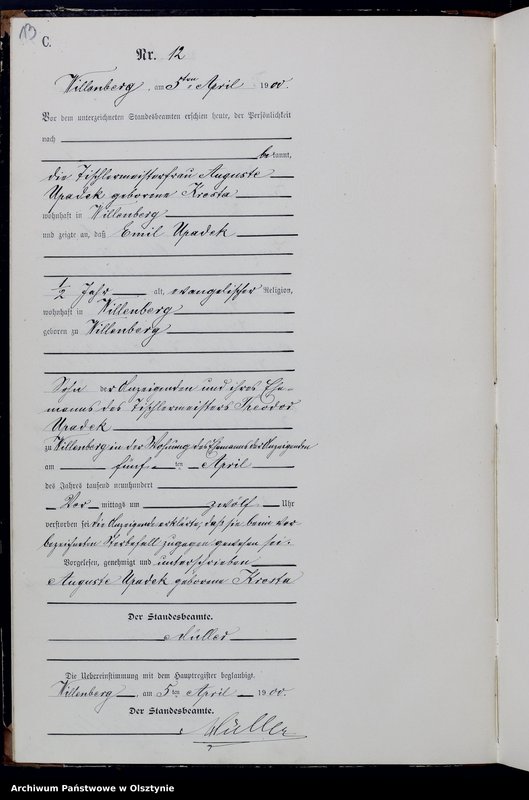 13
C.
Nr. 12
Willenberg, am 5ten April 1900.
Vor dem unterzeichneten Standesbeamten erschien heute, der Persönlichkeit
nach
be kannt,
die Tischlermeisterfrau Auguste
Upadek geborene Krosta
wohnhaft in Willenberg
und zeigte an, daß Emil Upadek
1/2 Jahr alt, evangelischer Religion,
wohnhaft in Willenberg
geboren zu Willenberg
Sohn der Anzeigenden und ihres Ehe-
manns des Tischlermeisters Theodor
Upadek
zu Willenberg in der Wohnung des Ehemanns der Anzeigenden
am fünf ten April
des Jahres tausend neunhundert
Vor mittags um zwölf Uhr
verstorben sei, die Anzeigende erklärte, daß sie beim vor
bezeichneten Sterbefall zugegen gewesen sei.
Vorgelesen, genehmigt und unterschrieben
Auguste Upadek geborene Krosta
Der Standesbeamte.
Müller
Die Uebereinstimmung mit dem Hauptregister beglaubigt.
Willenberg, am 5ten April 1900.
Der Standesbeamte.
Müller
Archiwum Państwowe w Olsztynie